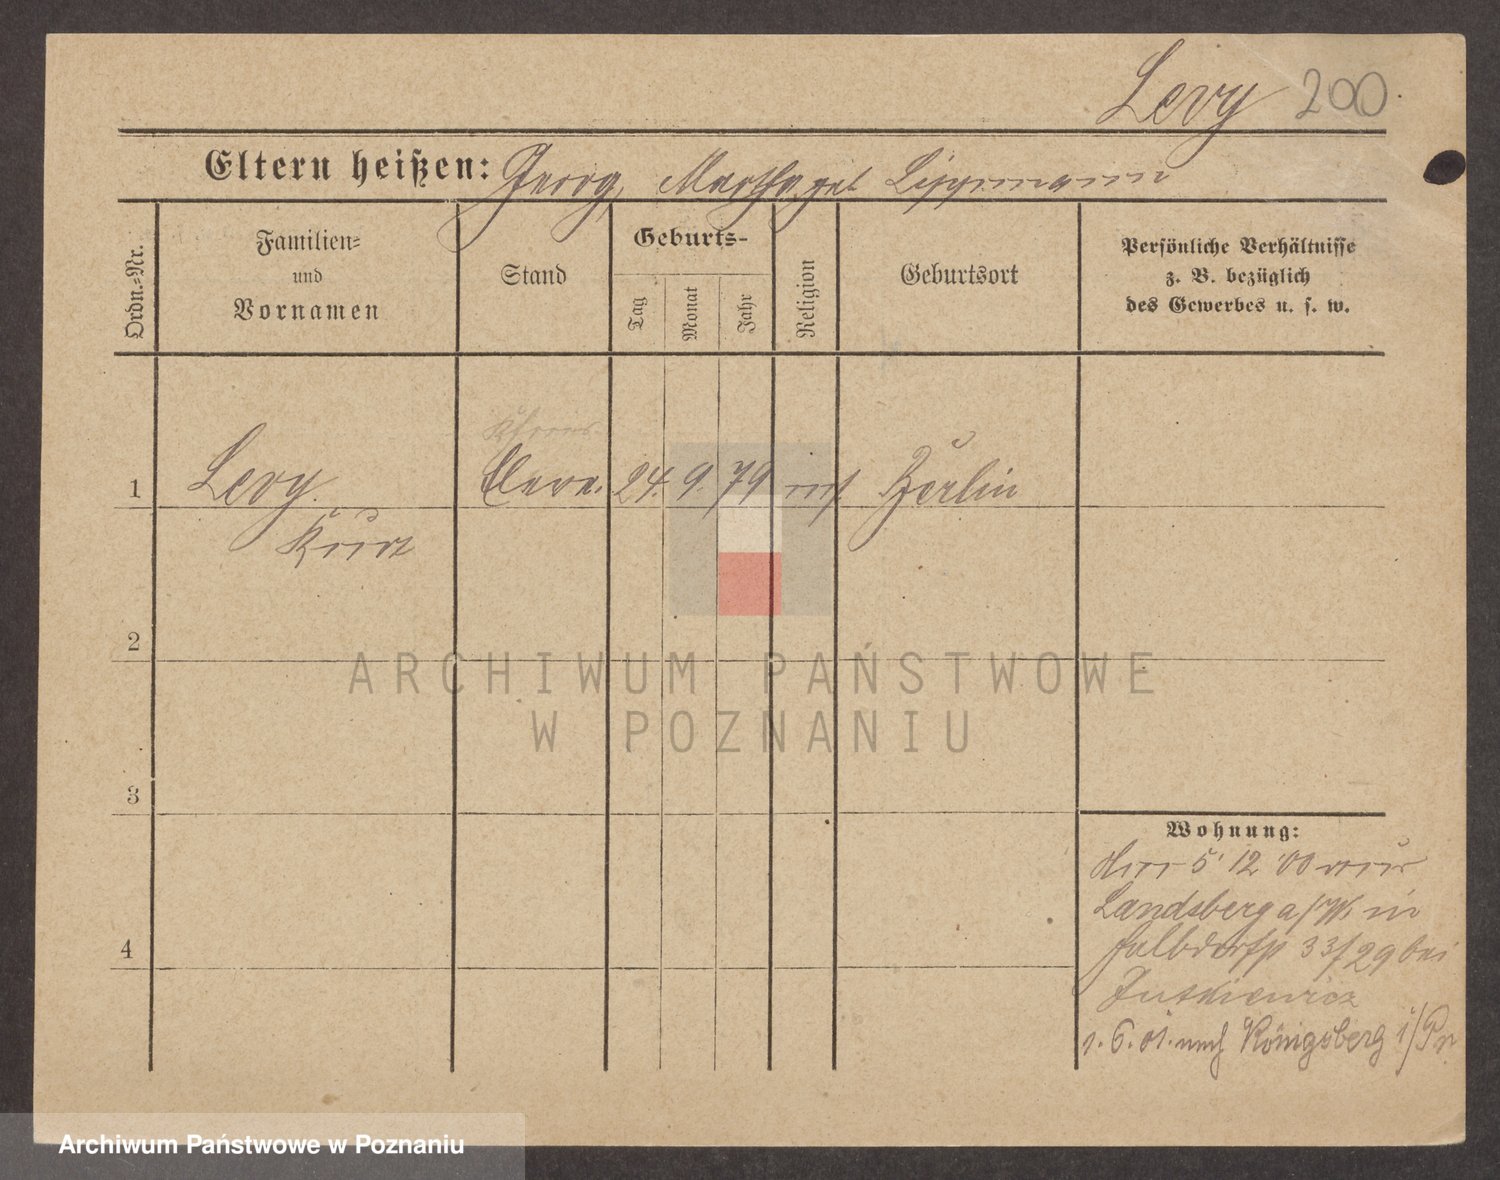 Levy 200
Eltern heißen: Georg, Martha geb Lippmann
Ordn.-Nr.
Familien-
und
Vornamen
Stand
Geburts-
Tag
Monat
Jahr
Religion
Geburtsort
Persönliche Verhältnisse
z. B. bezüglich
des Gewerbes u. s. w.
1 Levy. 24. 9. 79 mos Berlin
Kurt
2
ARCHIWUM PAŃSTWOWE
W POZNANIU
3
Wohnung:
5 12 00 aus
Landsberg a/W. in
Halbdorfst 33/29 bei
4
1. 6. 01. nach Königsberg i/Pr
Archiwum Państwowe w Poznaniu